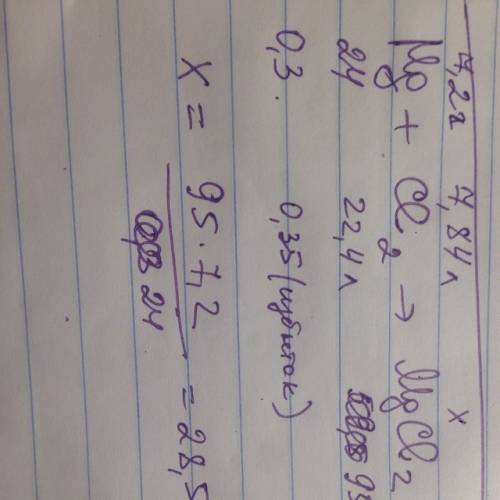 7,2г 7,84л x
Mg + Cl2 → MgCl2
24 22,4л 95
0,3. 0,35 (избыток)
x = 95·7,2 / 24 = 28,5